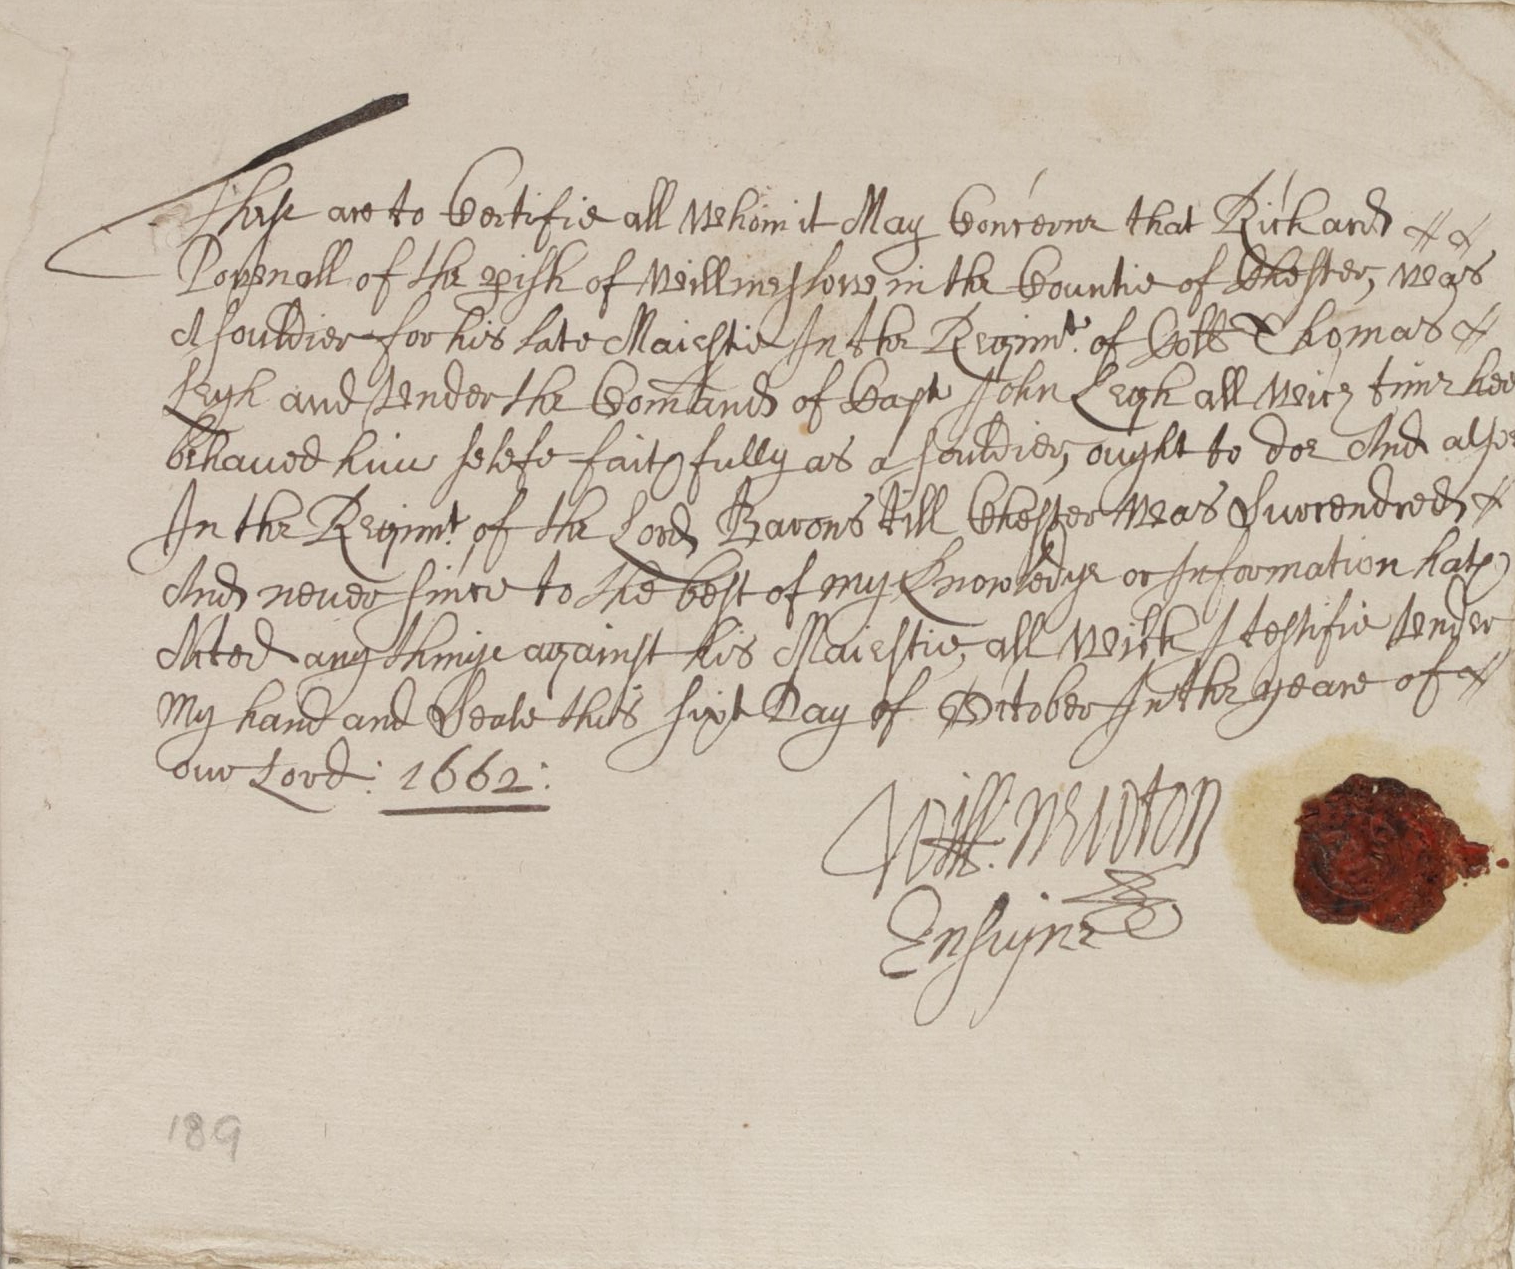 These are to Certifie all Whom it May Concerne that Richard
Pownall of the pish of Willmeslowe in the Countie of Chester, was
A souldier for his late Maiestie In the Regimt. of Coll Thomas
Legh and under the Comand of Capt John Legh all wich time hee
behaved him selefe faithfully as a souldier, ought to doe And alsoe
In the Regimt. of the Lord Barons till Chester Was Surrendred
And never since to the best of my Knowledge or Information hath
Acted any thinge against his Maiestie, all Wich I testifie under
My hand and Seale this sixt Day of October In the yeare of
our Lord: 1662:
Will. Newton
Ensigne
189